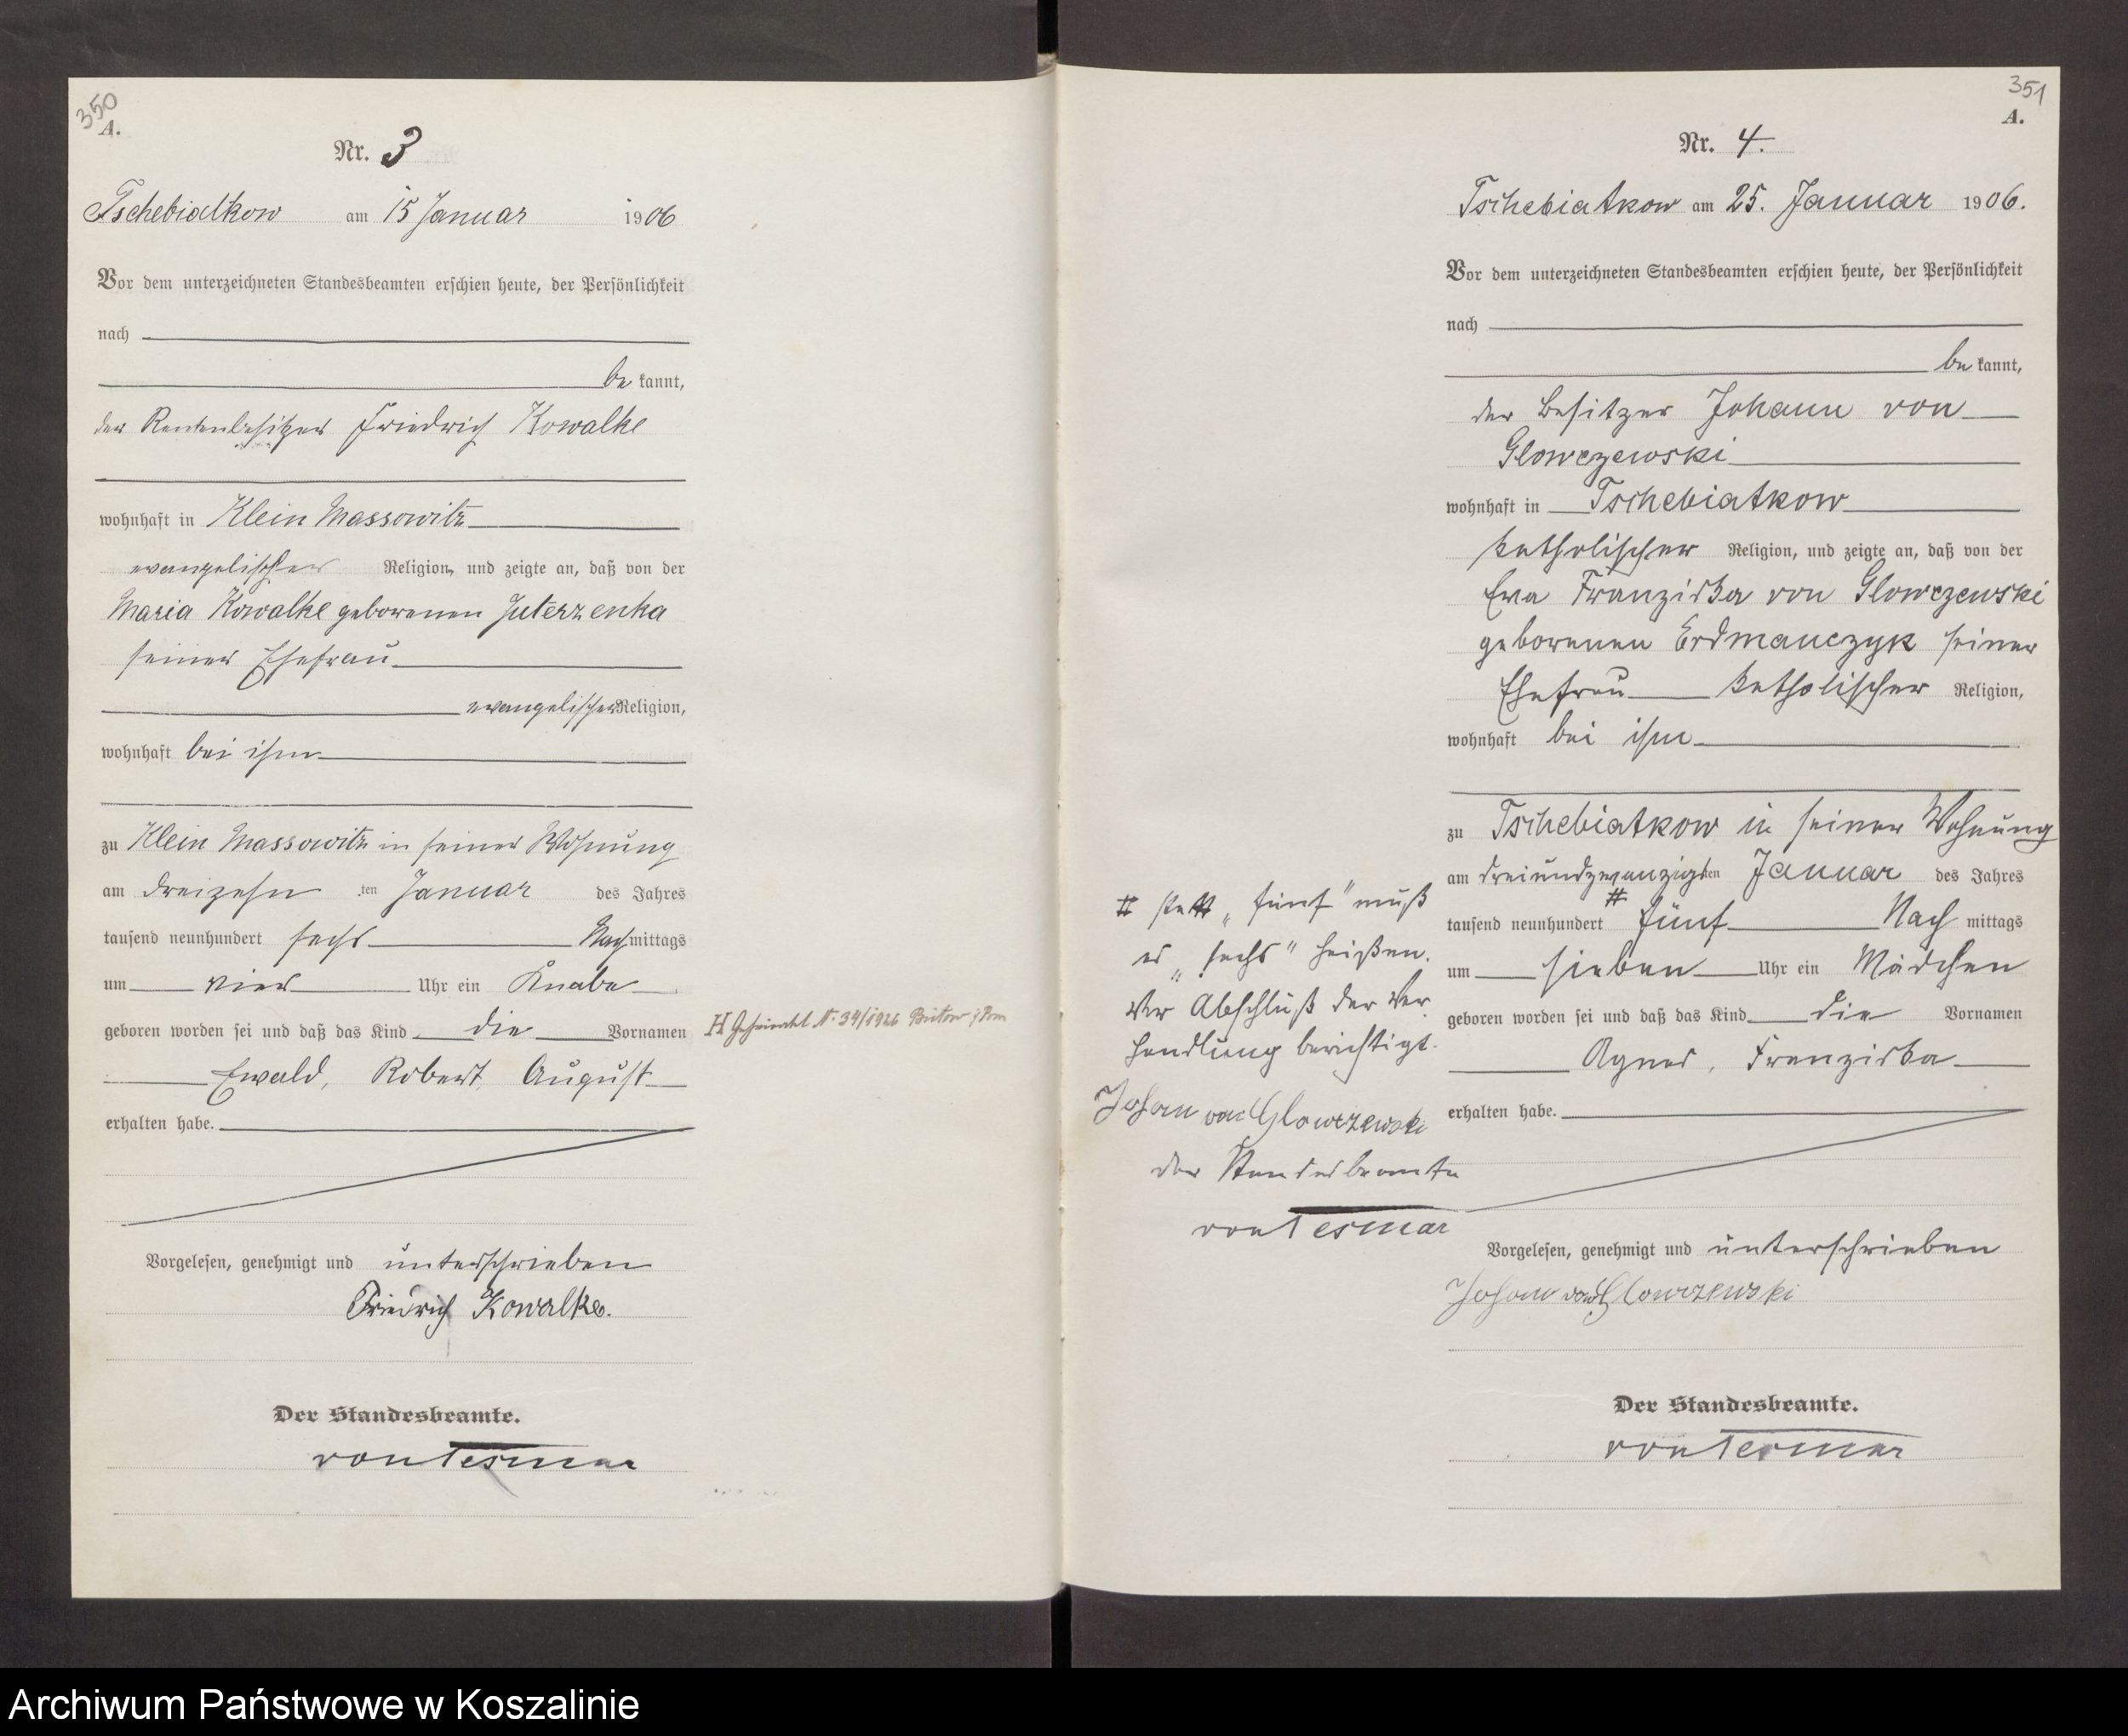 350
A.
Nr. 3
Tschebiatkow am 15 Januar 1906
Vor dem unterzeichneten Standesbeamten erschien heute, der Persönlichkeit
nach
be kannt,
der Rentenbesitzer Friedrich Kowalke
wohnhaft in Klein Massowitz
evangelischer Religion, und zeigte an, daß von der
Maria Kowalke geborenen Juterzenka
seiner Ehefrau
evangelischer Religion,
wohnhaft bei ihm
zu Klein Massowitz in seiner Wohnung
am dreizehn ten Januar des Jahres
tausend neunhundert sechs Nachmittags
um vier Uhr ein Knabe
geboren worden sei und daß das Kind die Vornamen
Ewald, Robert August
erhalten habe.
Vorgelesen, genehmigt und unterschrieben
Friedrich Kowalke.
Der Standesbeamte.
von Tesmar
H Geheiratet N. 34/1926 Bütow i/Pom
351
A.
Nr. 4.
Tschebiatkow am 25. Januar 1906.
Vor dem unterzeichneten Standesbeamten erschien heute, der Persönlichkeit
nach
be kannt,
der Besitzer Johann von
Glowczewski
wohnhaft in Tschebiatkow
katholischer Religion, und zeigte an, daß von der
Eva Franziska von Glowczewski
geborenen Erdmanczyk seiner
Ehefrau katholischer Religion,
wohnhaft bei ihm
zu Tschebiatkow in seiner Wohnung
am dreiundzwanzigsten Januar des Jahres
tausend neunhundert # fünf Nach mittags
um sieben Uhr ein Mädchen
geboren worden sei und daß das Kind die Vornamen
Agnes, Franziska
erhalten habe.
Vorgelesen, genehmigt und unterschrieben
Johann von Glowczewski
Der Standesbeamte.
von Tesmar
# statt „fünf" muß
es „sechs" heißen.
Vor Abschluß der Ver
handlung berichtigt.
Johann von Glowczewski
der Standesbeamte
von Tesmar
Archiwum Państwowe w Koszalinie